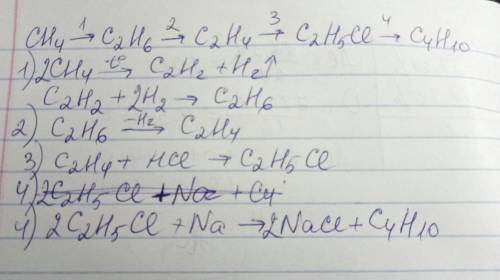 CH4 →1 C2H6 →2 C2H4 →3 C2H5Cl →4 C4H10
1) 2CH4 →t° C2H2 + H2↑
C2H2 + 2H2 → C2H6
2) C2H6 →-H2 C2H4
3) C2H4 + HCl → C2H5Cl
4) 2C2H5Cl + Na + C4
4) 2C2H5Cl + Na → 2NaCl + C4H10